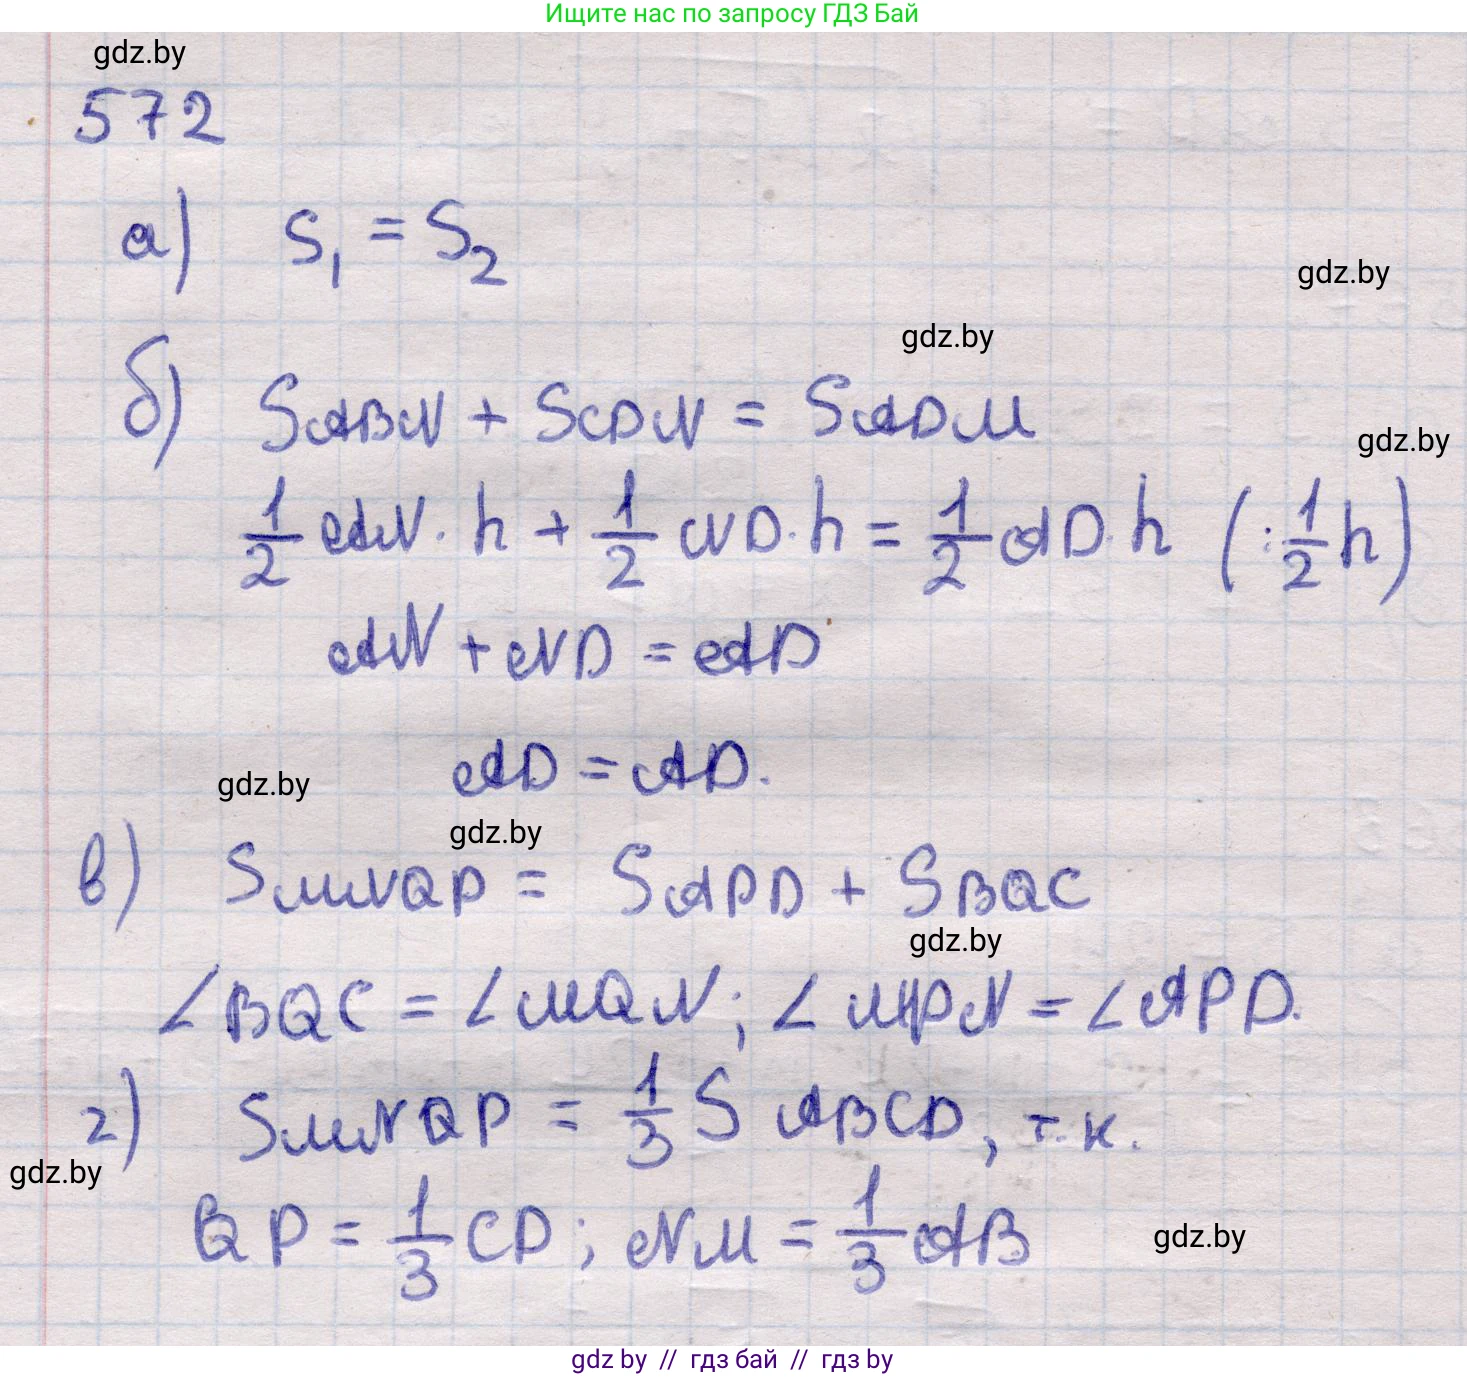 Ищите нас по запросу ГДЗ Бай
gdz.by
572
а) S₁ = S₂
gdz.by
gdz.by
б) S ABN + S CDN = S ADM
gdz.by
1/2 AN · h + 1/2 ND · h = 1/2 AD · h (: 1/2 h)
AN + ND = AD
AD = AD.
gdz.by
gdz.by
в) S MNQP = S APD + S BQC
gdz.by
∠BQC = ∠MQN; ∠MPN = ∠APD.
г) S MNQP = 1/3 S ABCD, т.к.
gdz.by
QP = 1/3 CD; NM = 1/3 AB
gdz.by
gdz by // гдз бай // гдз by